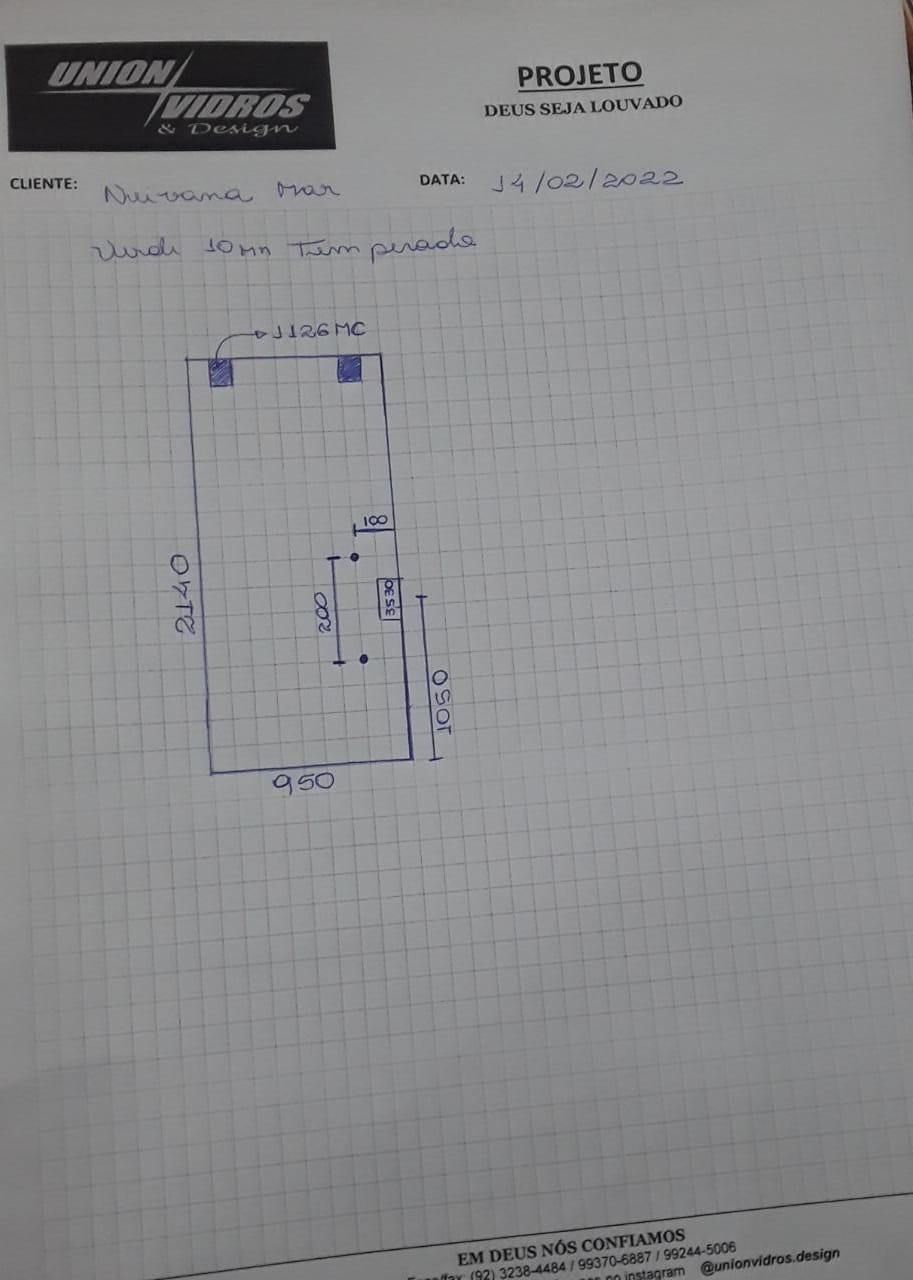 UNION
VIDROS
& Design
PROJETO
DEUS SEJA LOUVADO
CLIENTE: Mar
DATA: 14/02/2022
10mm Temperado
1126MC
100
2140
200
3530
1050
950
EM DEUS NÓS CONFIAMOS
(92) 3238-4484 / 99370-6887 / 99244-5006
no instagram @unionvidros.design